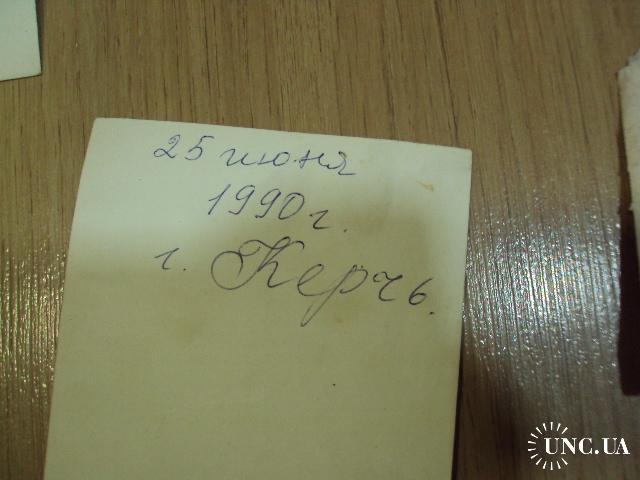 25 июня
1990 г.
г. Керчь.
UNC.UA